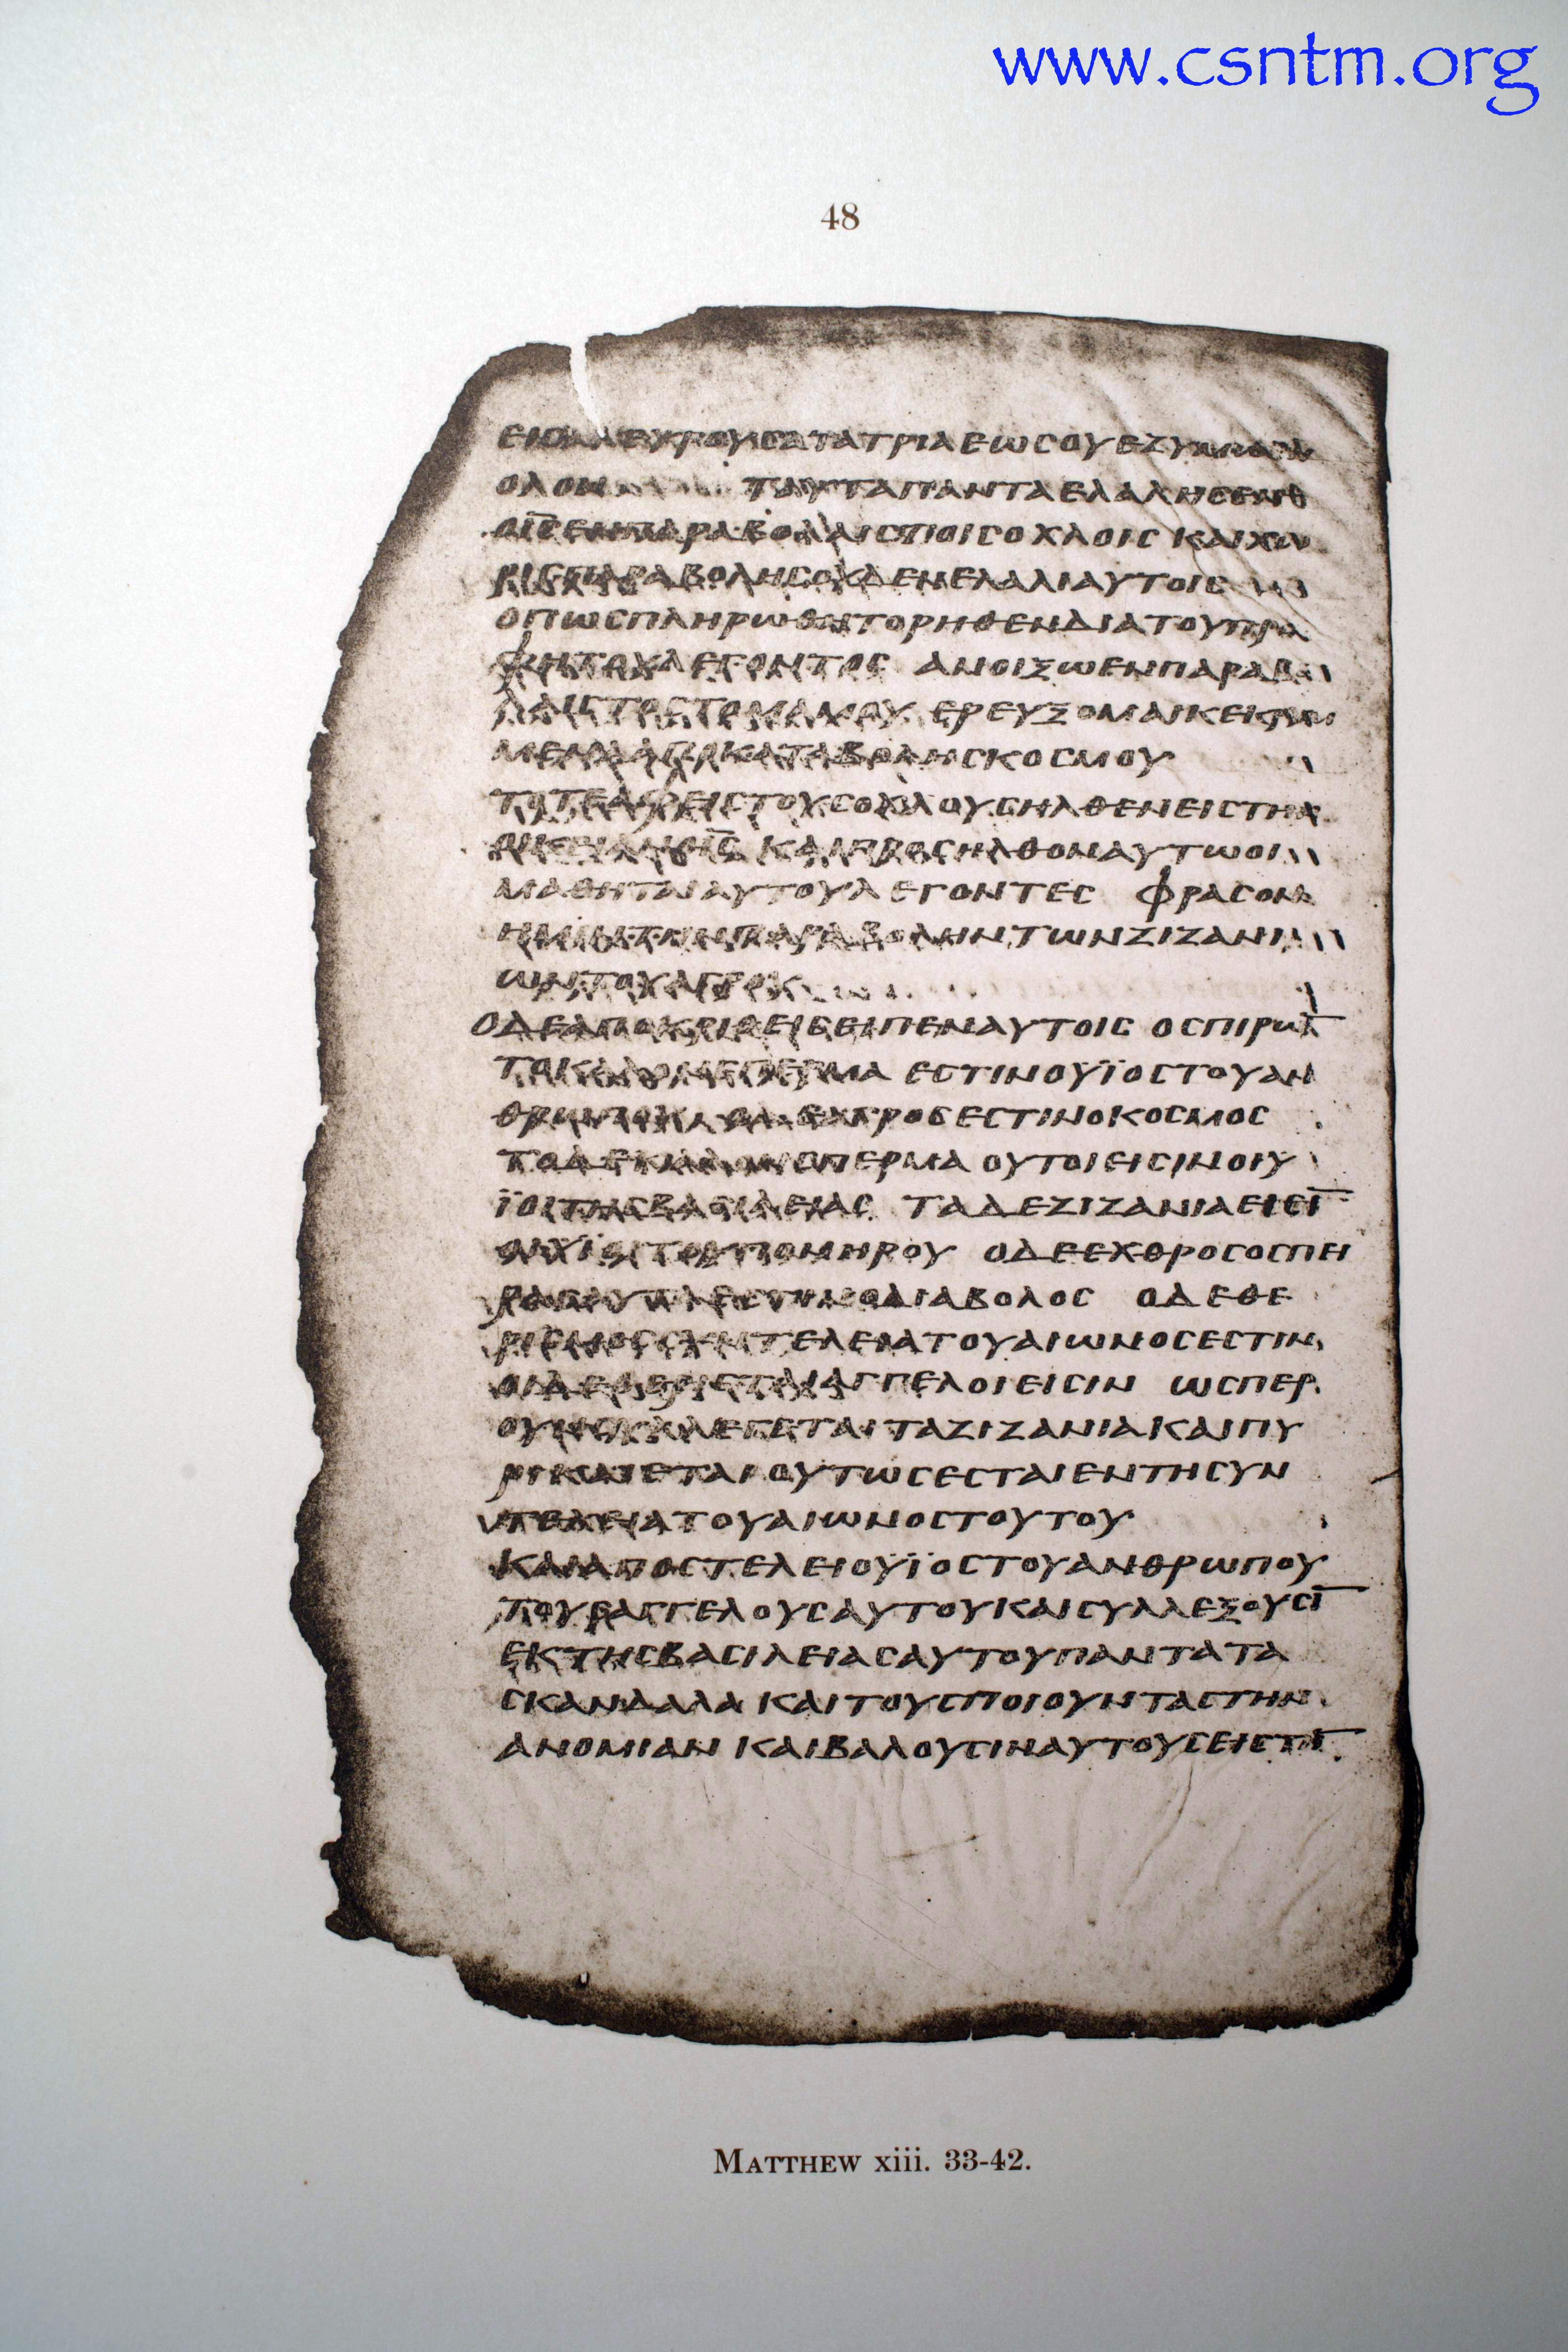 www.csntm.org
48
ΟΛΟΝ ΤΑΥΤΑΠΑΝΤΑΕΛΑΛΗСΕΝΟ
ΙСΕΝΠΑΡΑΒΟΛΑΙСΤΟΙСΟΧΛΟΙС ΚΑΙΧΩ
ΡΙСΠΑΡΑΒΟΛΗСΟΥΔΕΝΕΛΑΛΙΑΥΤΟΙС
ΟΠΩСΠΛΗΡΩΘΗΤΟΡΗΘΕΝΔΙΑΤΟΥΠΡΟ
ΦΗΤΟΥΛΕΓΟΝΤΟС ΑΝΟΙΞΩΕΝΠΑΡΑΒΟ
ΛΑΙСΤΟСΤΟΜΑΜΟΥ ΕΡΕΥΞΟΜΑΙΚΕΚΡΥΜ
ΜΕΝΑΑΠΟΚΑΤΑΒΟΛΗСΚΟСΜΟΥ
ΤΟΤΕΑΦΕΙСΤΟΥСΟΧΛΟΥСΗΛΘΕΝΕΙСΤΗΝ
ΚΑΙΠΡΟСΗΛΘΟΝΑΥΤΩΟΙ
ΜΑΘΗΤΑΙΑΥΤΟΥΛΕΓΟΝΤΕС ΦΡΑСΟΝ
ΗΜΙΝΤΗΝΠΑΡΑΒΟΛΗΝΤΩΝΖΙΖΑΝΙ
ΩΝΤΟΥΑΓΡΟΥ
ΟΔΕΑΠΟΚΡΙΘΕΙСΕΙΠΕΝΑΥΤΟΙС ΟСΠΙΡΩ̅
ΤΟΚΑΛΟΝСΠΕΡΜΑ ΕСΤΙΝΟΥΪΟСΤΟΥΑΝ
ΘΡΩΠΟΥ ΟΔΕΑΓΡΟСΕСΤΙΝΟΚΟСΜΟС
ΤΟΔΕΚΑΛΟΝСΠΕΡΜΑ ΟΥΤΟΙΕΙСΙΝΟΙΥ
ΪΟΙΤΗСΒΑСΙΛΕΙΑС ΤΑΔΕΖΙΖΑΝΙΑΕΙСΙ̅
ΟΙΥΙΟΙΤΟΥΠΟΝΗΡΟΥ ΟΔΕΕΧΘΡΟСΟСΠΕΙ
ΡΑСΑΥΤΑΕСΤΙΝΟΔΙΑΒΟΛΟС ΟΔΕΘΕ
ΡΙСΜΟССΥΝΤΕΛΕΙΑΤΟΥΑΙΩΝΟСΕСΤΙΝ
ΟΙΔΕΘΕΡΙСΤΑΙΑΓΓΕΛΟΙΕΙСΙΝ ΩСΠΕΡ
ΟΥΝСΥΛΛΕΓΕΤΑΙΤΑΖΙΖΑΝΙΑΚΑΙΠΥ
ΡΙΚΑΙΕΤΑΙ ΟΥΤΩСΕСΤΑΙΕΝΤΗСΥΝ
ΤΕΛΕΙΑΤΟΥΑΙΩΝΟСΤΟΥΤΟΥ
ΚΑΙΑΠΟСΤΕΛΕΙΟΥΪΟСΤΟΥΑΝΘΡΩΠΟΥ
ΤΟΥСΑΓΓΕΛΟΥСΑΥΤΟΥΚΑΙСΥΛΛΕΞΟΥСΙ̅
ΕΚΤΗСΒΑСΙΛΕΙΑСΑΥΤΟΥΠΑΝΤΑΤΑ
СΚΑΝΔΑΛΑ ΚΑΙΤΟΥСΠΟΙΟΥΝΤΑСΤΗΝ
ΑΝΟΜΙΑΝ ΚΑΙΒΑΛΟΥСΙΝΑΥΤΟΥСΕΙСΤΗ̅
MATTHEW xiii. 33-42.